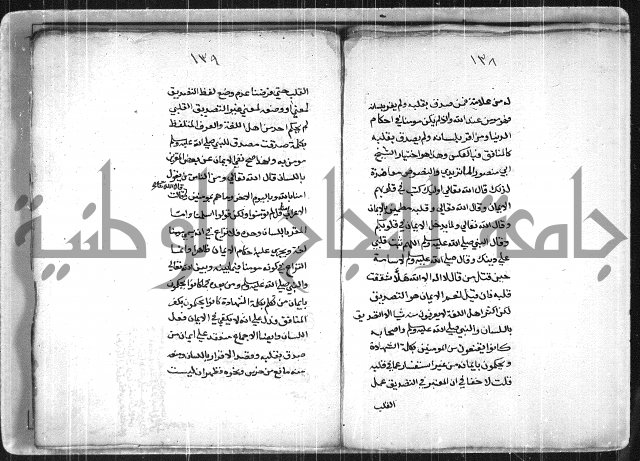 ١٣٨
له من علامة فمن صدق بقلبه ولم يقر بلسانه
فهو مؤمن عند الله وان لم يكن مؤمنا في احكام
الدنيا ومن اقر بلسانه ولم يصدق بقلبه
كالمنافق فبالعكس وهذا هو اختيار الشيخ
ابي منصور الماتريدي والنصوص معاضدة
لذلك قال الله تعالى اوليك كتب في قلوبهم
الايمان وقال الله تعالى وقلبه مطمين بالايمان
وقال الله تعالى ولما يدخل الايمان في قلوبكم
وقال النبي صلى الله عليه وسلم اللهم ثبت قلبي
على دينك وقال صلى الله عليه وسلم لاسامة
حين قتل من قال لا اله الا الله هلا شققت
قلبه فان قيل نعم الايمان هو التصديق
لكن اهل اللغة لا يعرفون منه الا التصديق
باللسان والنبي صلى الله عليه وسلم واصحابه
كانوا يقنعون من المومنين بكلمة الشهادة
ويحكمون بايمانه من غير استفسار عما في قلبه
قلت لا خفا في ان المعتبر في التصديق عمل
القلب
١٣٩
القلب حتى لو فرضنا عدم وضع لفظ التصديق
لمعنى او وضعه لمعنى غير التصديق القلبي
لم يحكم احد من اهل اللغة والعرف المتلفظ
بكلمة صدقت مصدق للنبي صلى الله عليه وسلم
مومن به ولهذا صح نفي الايمان عن بعض المقرين
باللسان قال الله تعالى ومن الناس من يقول
امنا بالله وباليوم الاخر وما هم بمومنين وقال الله تعالى قالت
الاعراب امنا قل لم تومنوا ولكن قولوا اسلمنا واما
المقر باللسان وحده فلا نزاع في انه يسمى مومنا
لغة ويجري عليه احكام الايمان ظاهرا وانما
النزاع في كونه مومنا فيما بينه وبين الله تعالى
والنبي صلى الله عليه وسلم ومن بعده كما كانوا يحكمون
بايمان من تكلم بكلمة الشهادة كانوا يحكمون بكفر
المنافق فدل على انه لا يكفي في الايمان فعل
اللسان وايضا الاجماع منعقد على ايمان من
صدق بقلبه وقصد الاقرار باللسان ومنعه
منه مانع من خرس ونحوه فظهر ان ليست
جامعة النجاح الوطنية